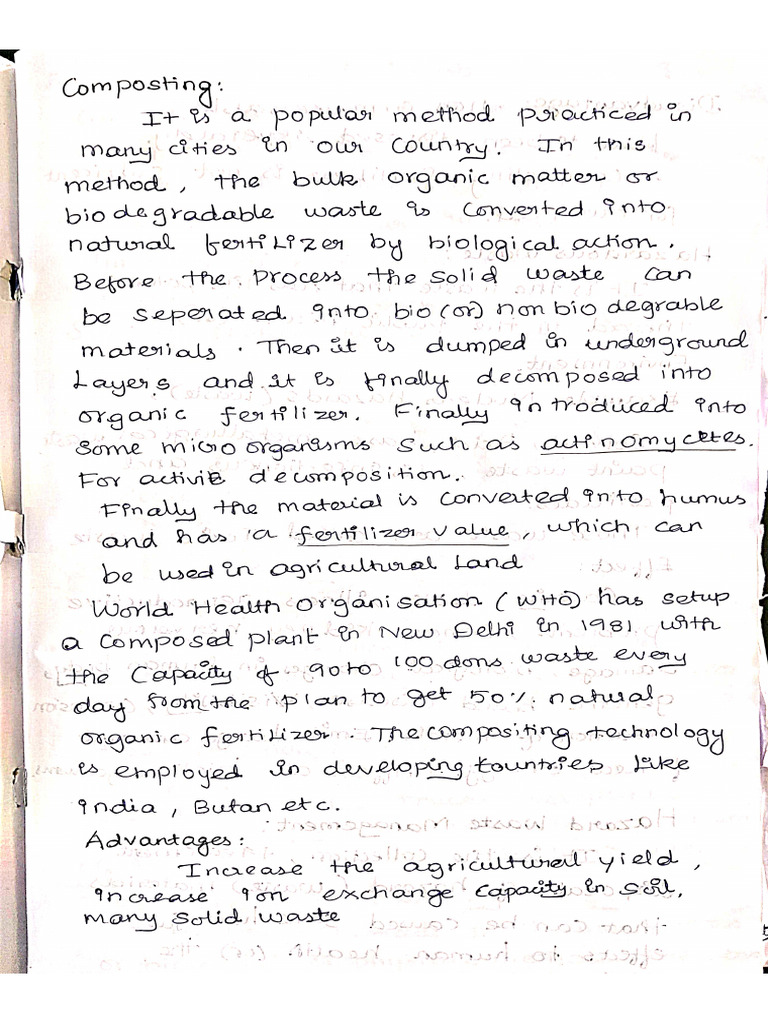 Composting:
It is a popular method practiced in
many cities in our country. In this
method, the bulk organic matter or
biodegradable waste is converted into
natural fertilizer by biological action.
Before the process the solid waste can
be seperated into bio (or) non bio degrable
materials. Then it is dumped in underground
Layers and it is finally decomposed into
organic fertilizer. Finally introduced into
some micro organisms such as actinomycetes.
For activie decomposition.
Finally the material is converted into humus
and has a fertilizer value, which can
be used in agricultural land
World Health Organisation (WHO) has setup
a composed plant in New Delhi in 1981 with
the capacity of 90 to 100 dons waste every
day from the plan to get 50% natural
organic fertilizer. The compositing technology
is employed in developing countries like
india, Butan etc.
Advantages:
Increase the agricultural yield,
increase ion exchange capacity in soil,
many solid waste